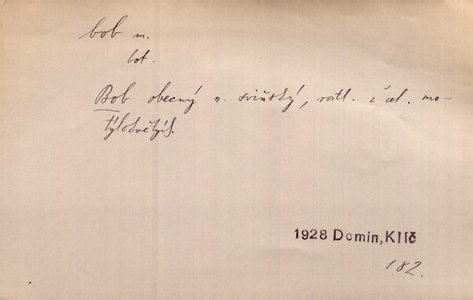 bob m.
bot.
Bob obecný n. sviňský, rostl. z čel. mo-
týlokvětých.
1928 Domin, Klíč
182.